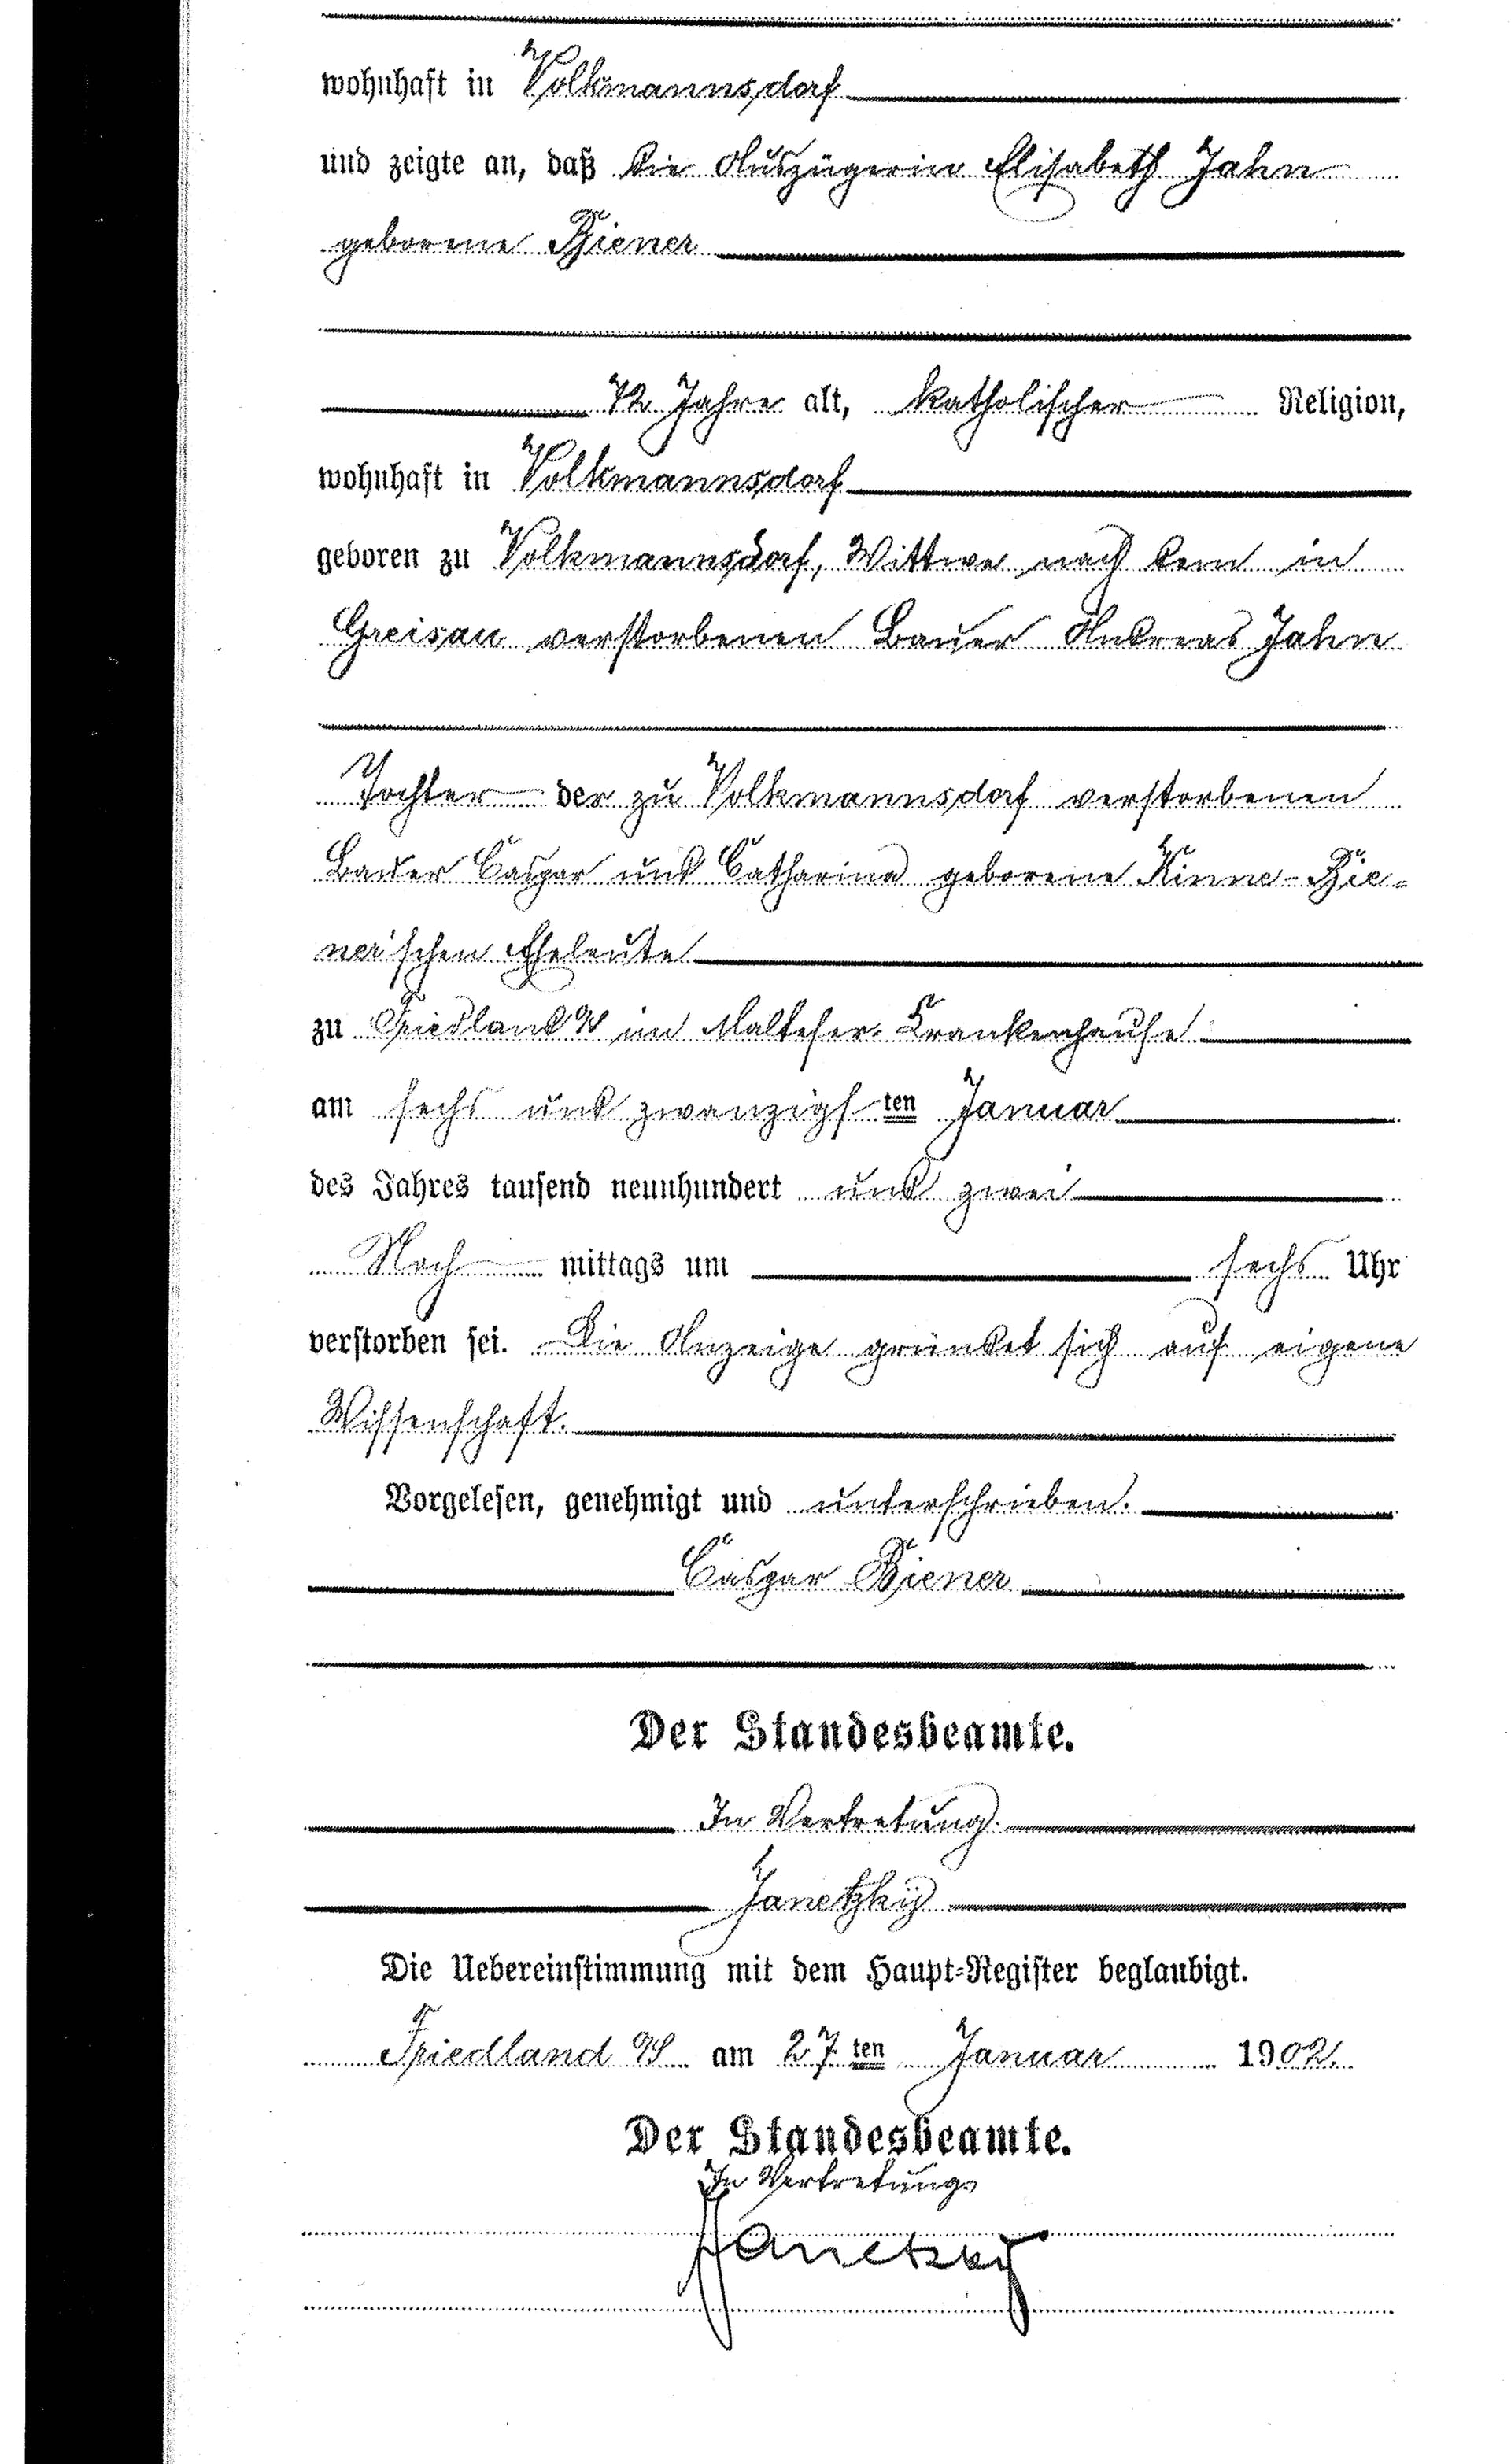 wohnhaft in Volkmannsdorf
und zeigte an, daß die Auszügerin Elisabeth Jahn
geborene Biener
72 Jahre alt, katholischer Religion,
wohnhaft in Volkmannsdorf
geboren zu Volkmannsdorf, Wittwe nach dem in
Greisau verstorbenen Bauer Andreas Jahn
Tochter der zu Volkmannsdorf verstorbenen
Bauer Caspar und Catharina geborene Kinne-Bie-
ner'schen Eheleute
zu Friedland im Malteser-Krankenhause
am sechs und zwanzigsten Januar
des Jahres tausend neunhundert und zwei
Nach mittags um sechs Uhr
verstorben sei. Die Anzeige gründet sich auf eigene
Wissenschaft.
Vorgelesen, genehmigt und unterschrieben.
Caspar Biener
Der Standesbeamte.
In Vertretung.
Janetzky
Die Uebereinstimmung mit dem Haupt-Register beglaubigt.
Friedland am 27ten Januar 1902.
Der Standesbeamte.
In Vertretung.
Janetzky